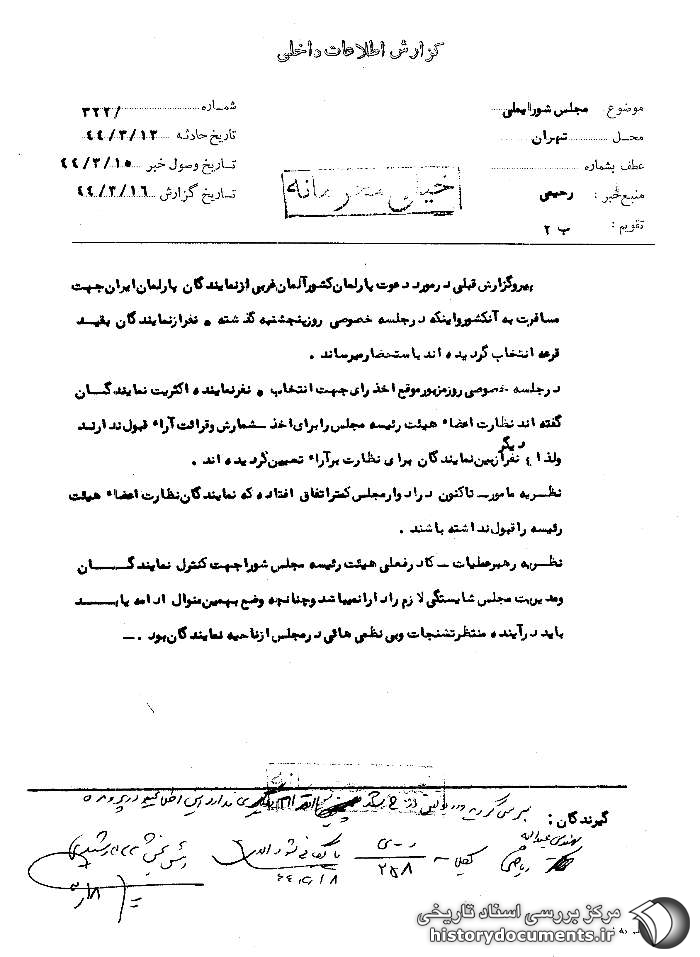 گزارش اطلاعات داخلی
موضوع مجلس شورایملی
شماره ۳۲۲/
محل تهران
تاریخ حادثه ۴۴/۳/۱۳
عطف بشماره
تاریخ وصول خبر ۴۴/۳/۱۵
منبع خبر : رحیمی
تاریخ گزارش ۴۴/۳/۱۶
تقویم : ب ۲
خیلی محرمانه
پیروگزارش قبلی درمورد دعوت پارلمان کشورآلمان غربی ازنمایندگان پارلمان ایران جهت
مسافرت به آنکشورواینکه درجلسه خصوصی روزپنجشنبه گذشته ۵ نفرازنمایندگان بقید
قرعه انتخاب گردیده اند باستحضارمیرساند .
درجلسه خصوصی روزمزبورموقع اخذ رای جهت انتخاب ۵ نفرنماینده اکثریت نمایندگان
گفته اند نظارت اعضاء هیئت رئیسه مجلس رابرای اخذ ـ شمارش وقرائت آراء قبول ندارند
ولذا ٤ نفر دیگر ازبین نمایندگان برای نظارت برآراء تعیین گردیده اند .
نظریه مامورـ تاکنون درادوارمجلس کمتراتفاق افتاده که نمایندگان نظارت اعضاء هیئت
رئیسه راقبول نداشته باشند .
نظریه رهبرعملیات ـ کادرفعلی هیئت رئیسه مجلس شوراجهت کنترل نمایندگان
ومدیریت مجلس شایستگی لازم را دارانمیباشد وچنانچه وضع بهمین منوال ادامه یابد
باید درآینده منتظرتشنجات وبی نظمی هائی درمجلس ازناحیه نمایندگان بود . ـ
گیرندگان :
مهندس عبدالله
ریاضی
۲۵۸
مرکز بررسی اسناد تاریخی
historydocuments.ir